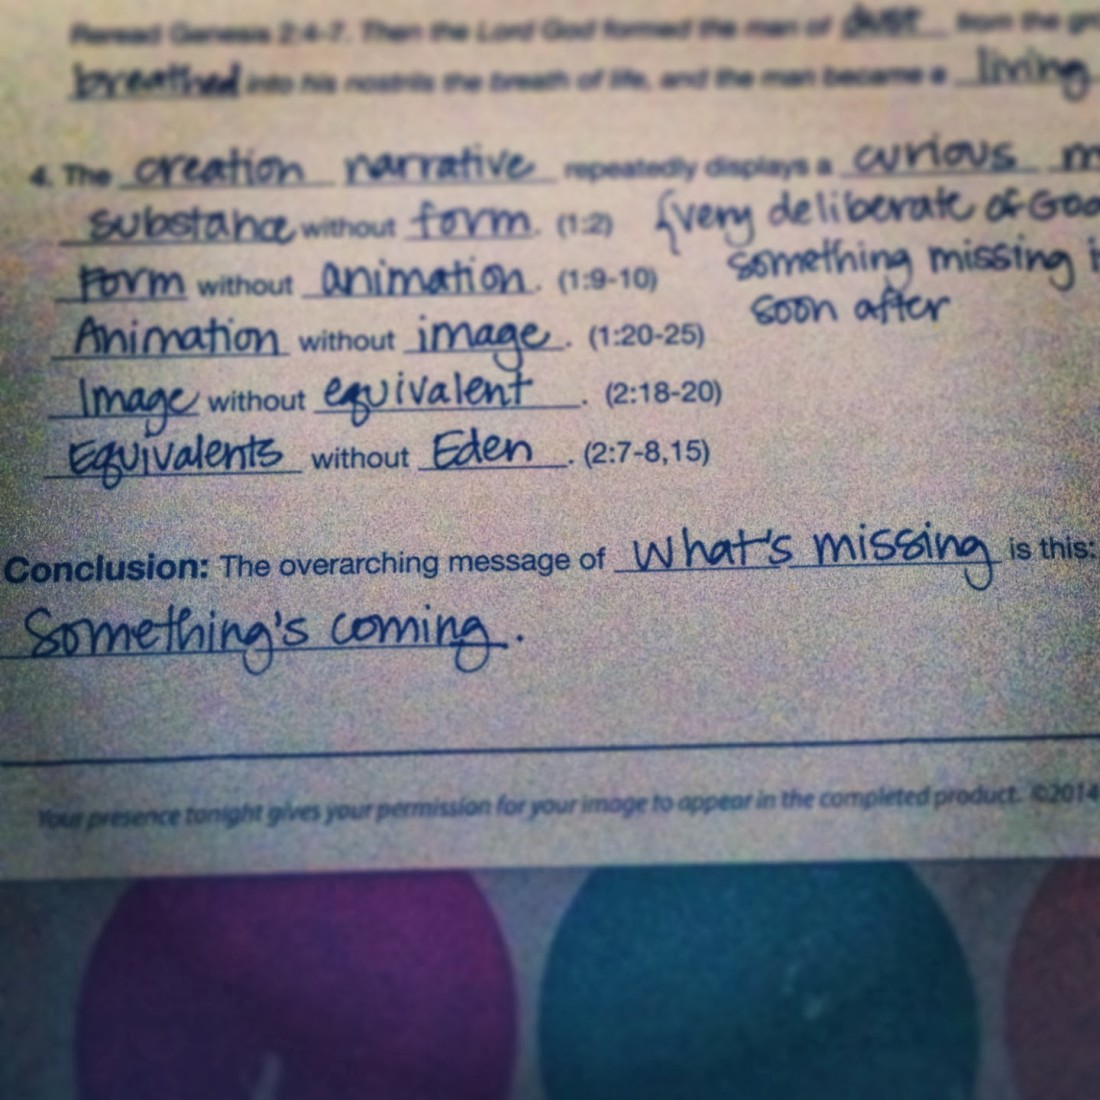 Reread Genesis 2:4-7. Then the Lord God formed the man of dust from the
breathed into his nostrils the breath of life, and the man became a living
4. The creation narrative repeatedly displays a curious
substance without form. (1:2) {very deliberate of God
Form without animation. (1:9-10) something missing
soon after
Animation without image. (1:20-25)
Image without equivalent. (2:18-20)
Equivalents without Eden. (2:7-8,15)
Conclusion: The overarching message of what's missing is this:
Something's coming.
Your presence tonight gives your permission for your image to appear in the completed product. ©2014